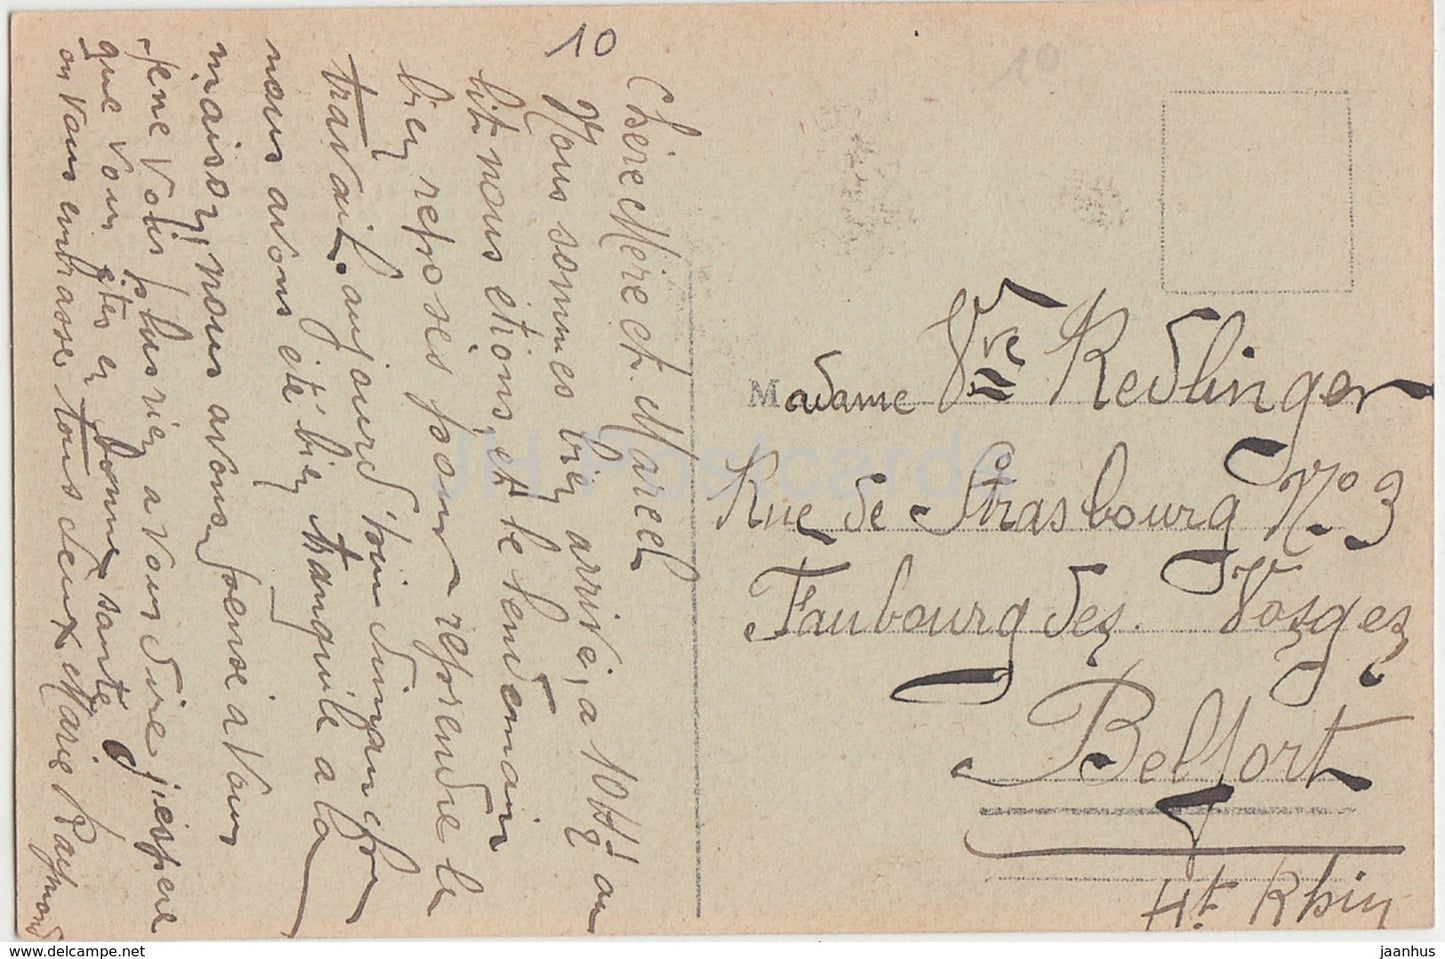 10
10
Chère Mère et. Marcel
Nous sommes bien arrivé, a 10h¼ au
lit nous étions, et le lendemain
bien reposés pour reprendre le
travail. aujourd'hui dimanche
nous avons été bien tranquile a la
maison, nous avons pensé a vous
Je ne vois plus rien a vous dire j'espère
que vous êtes en bonne santé
on vous embrasse tous deux Marie Raymond
Madame Vve Redlinger
Rue de Strasbourg No 3
Faubourg des. Vosges
Belfort
Ht Rhin
JH Postcards
www.delcampe.net
jaanhus